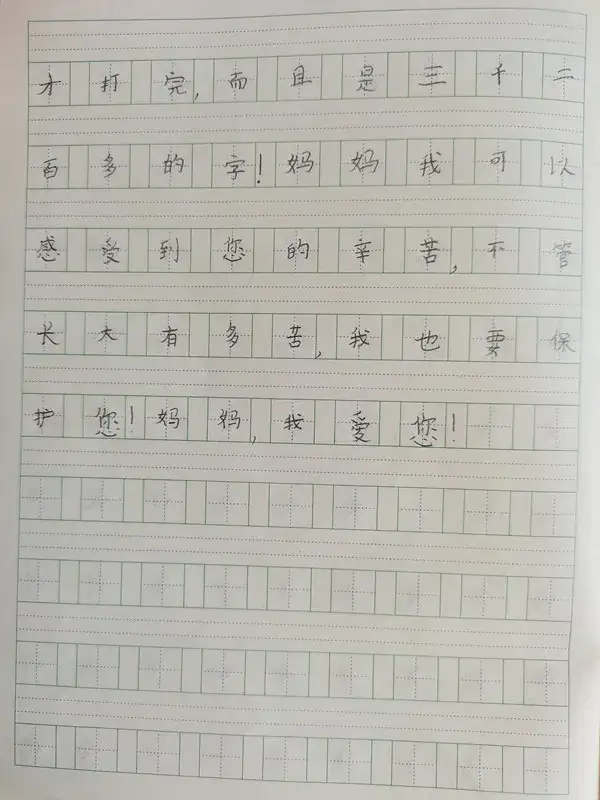 才打完,而且是三千二
百多的字!妈妈我可以
感受到您的辛苦,不管
长大有多苦,我也要保
护您!妈妈,我爱您!